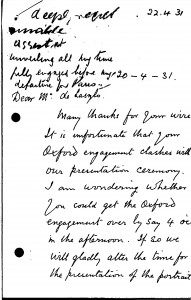 deeply regret 22.4.31
unable
assent at
unveiling all my time
fully engaged before my 20-4-31.
departure for Paris
Dear Mr. de Laszlo.
Many thanks for your wire
It is unfortunate that your
Oxford engagement clashes with
our presentation ceremony.
I am wondering whether
you could get the Oxford
engagement over by say 4 oc
in the afternoon. If so we
will gladly alter the time for
the presentation of the portrait